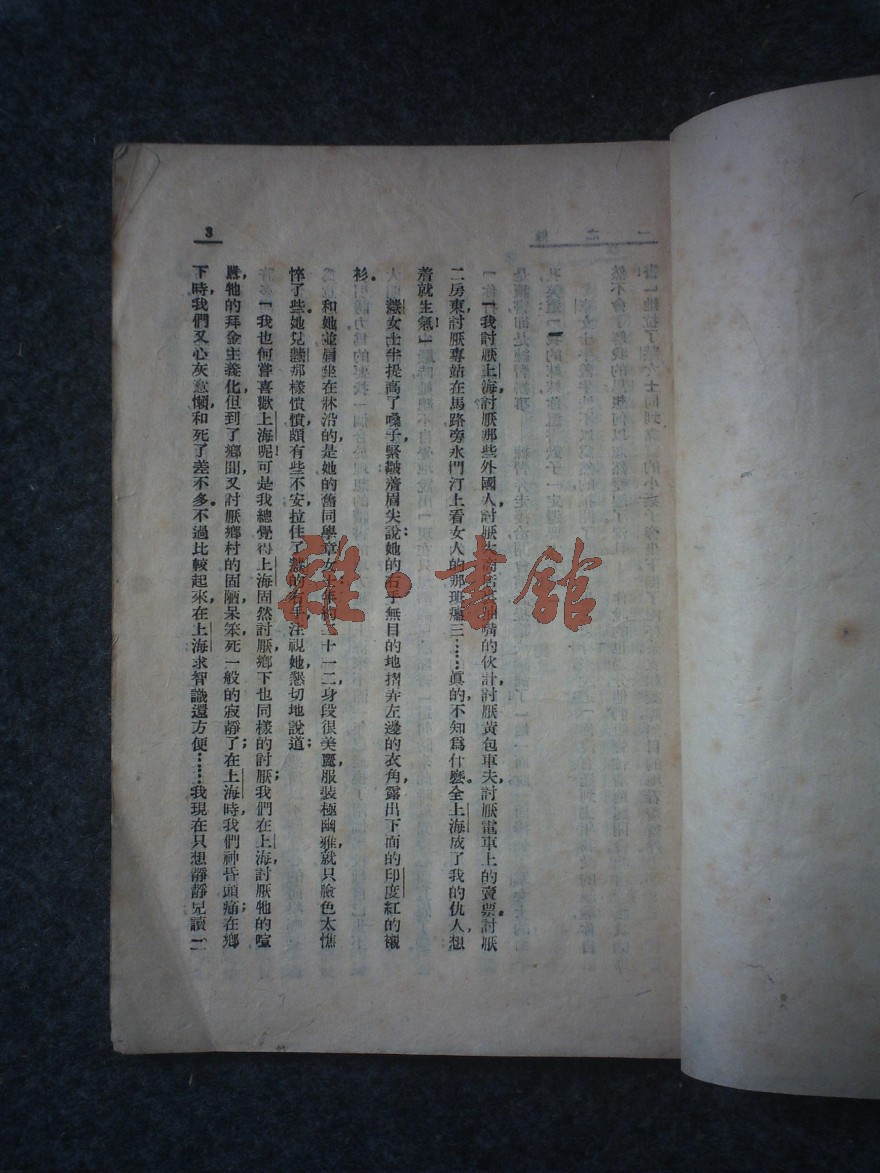 3
一
「我討厭上海,討厭那些外國人,討厭大商店裏油嘴的伙計,討厭黃包車夫,討厭電車上的賣票,討厭
二房東,討厭專站在馬路旁水門汀上看女人的那班癟三……真的,不知爲什麽,全上海成了我的仇人,想
着就生氣!」
慧女士半提高了嗓子,緊皺着眉尖說;她的右手無目的地摺弄左邊的衣角,露出下面的印度紅的襯
衫。
和她並肩坐在牀沿的是她的舊同學章女士:年約二十一二,身段很美麗,服裝極幽雅,就只臉色太憔
悴了些。她見慧那樣憤憤,頗有些不安,拉住了慧的右手,注視她,懇切地說道:
「我也何嘗喜歡上海呢!可是我總覺得上海固然討厭,鄉下也同樣的討厭;我們在上海,討厭牠的喧
囂,牠的拜金主義化,但到了鄉間,又討厭鄉村的固陋,呆笨,死一般的寂靜了;在上海時我們神昏頭痛;在鄉
下時,我們又心灰意懶,和死了差不多。不過比較起來,在上海求智識還方便……我現在只想靜靜兒讀一
雜·書館